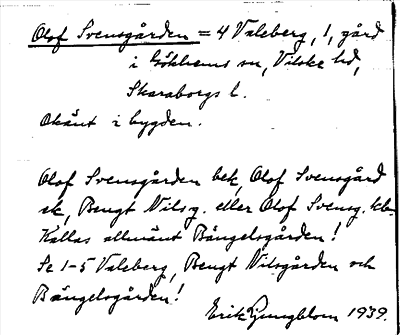 Olof Svensgården = 4 Valeberg, 1, gård
i Gökhems sn, Vilske hd,
Skaraborgs l.
Okänt i bygden.
Olof Svensgården bek, Olof Svensgård
sk, Bengt Nilsg. eller Olof Svensg. kb.
Kallas allmänt Bängelsgården!
Se 1-5 Valeberg, Bengt Nilsgården och
Bängelsgården!
Erik Ljungblom 1939.